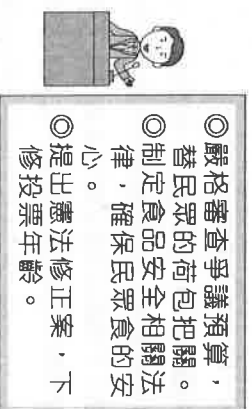 ◎嚴格審查爭議預算，
替民眾的荷包把關。
◎制定食品安全相關法
律，確保民眾食的安
心。
◎提出憲法修正案，下
修投票年齡。